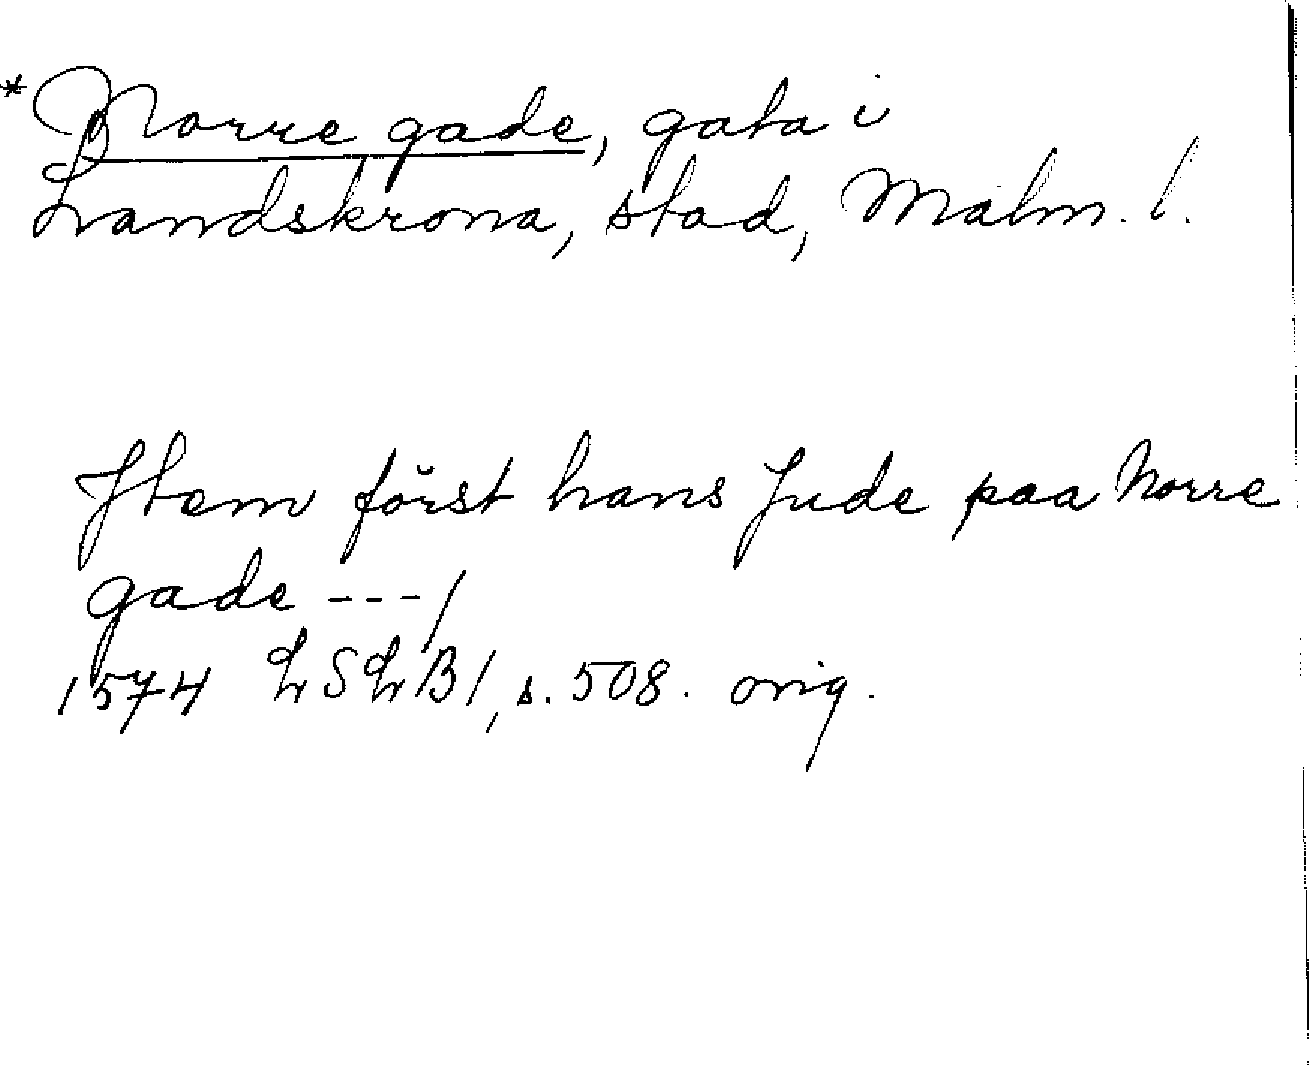 * Norre gade, gata i
Landskrona, stad, Malm. l.
Item först hans Jude paa Norre
gade ---/
1574 LSLB 1, s. 508. orig.